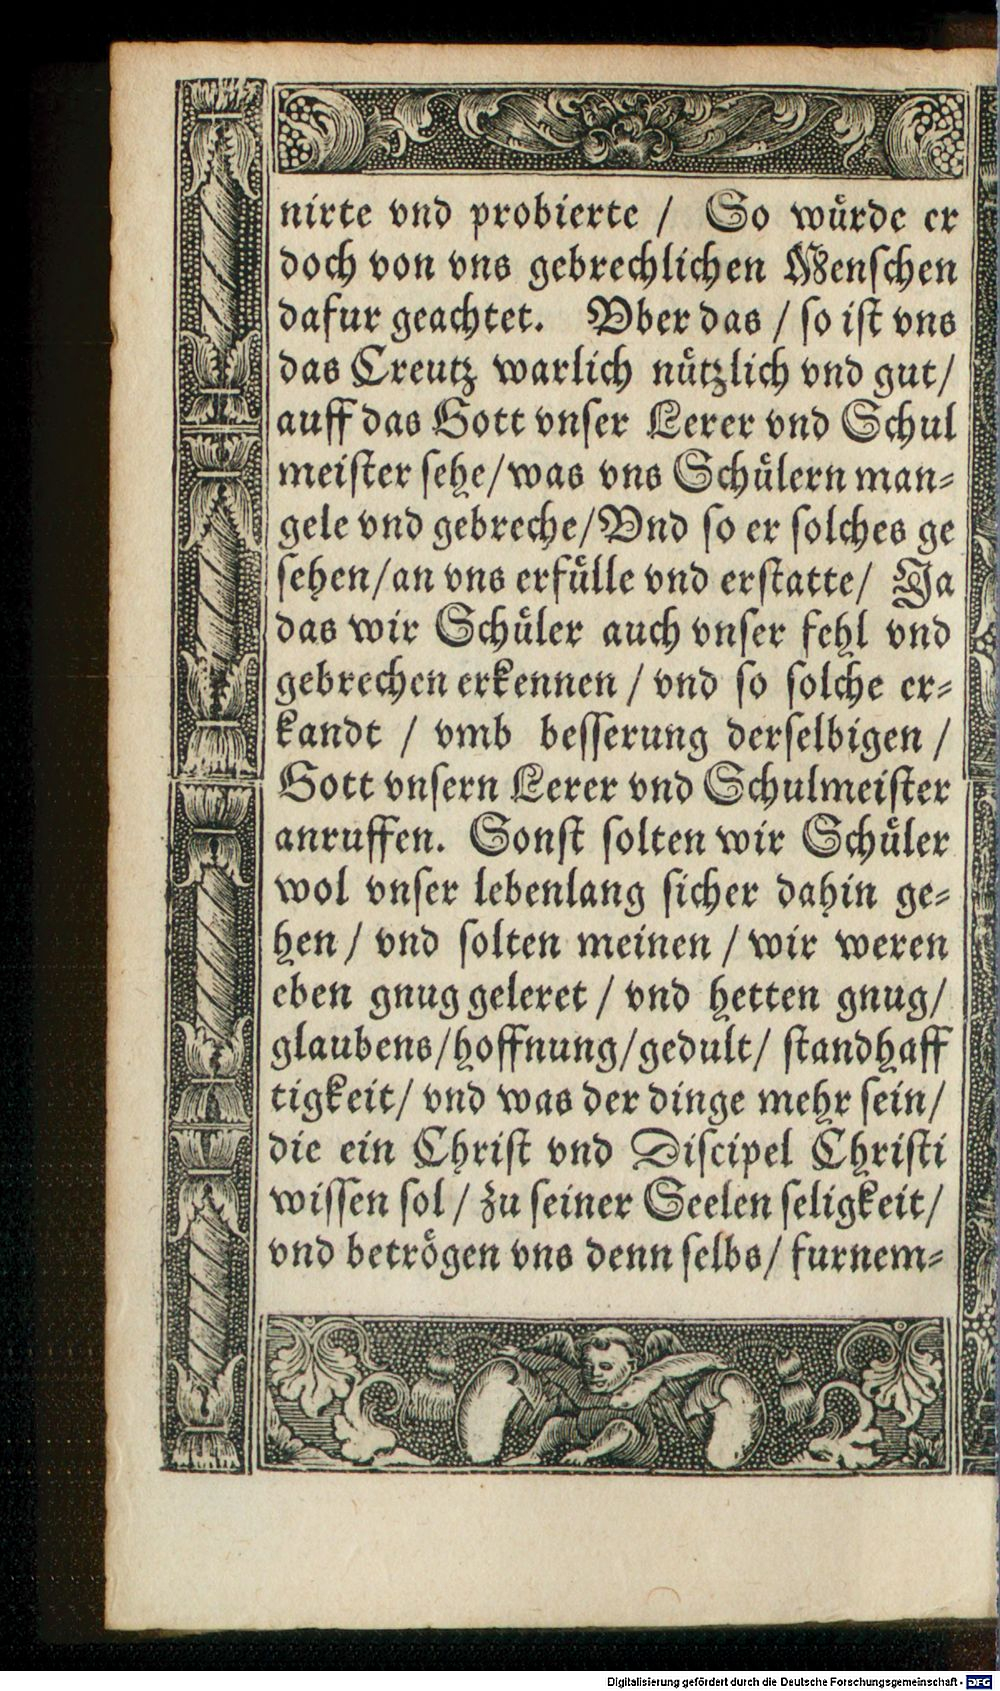 nirte vnd probierte / So wuͤrde er
doch von vns gebrechlichen Menschen
dafur geachtet. Vber das / so ist vns
das Creutz warlich nuͤtzlich vnd gut /
auff das Gott vnser Lerer vnd Schul
meister sehe / was vns Schuͤlern man-
gele vnd gebreche / Vnd so er solches ge
sehen / an vns erfuͤlle vnd erstatte / Ja
das wir Schuͤler auch vnser fehl vnd
gebrechen erkennen / vnd so solche er-
kandt / vmb besserung derselbigen /
Gott vnsern Lerer vnd Schulmeister
anruffen. Sonst solten wir Schuͤler
wol vnser lebenlang sicher dahin ge-
hen / vnd solten meinen / wir weren
eben gnug geleret / vnd hetten gnug /
glaubens / hoffnung / gedult / standhaff
tigkeit / vnd was der dinge mehr sein /
die ein Christ vnd Discipel Christi
wissen sol / zu seiner Seelen seligkeit /
vnd betroͤgen vns denn selbs / furnem-
Digitalisierung gefördert durch die Deutsche Forschungsgemeinschaft - DFG